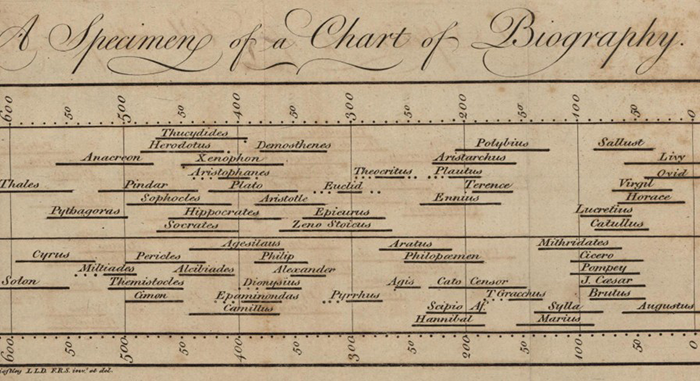 A Specimen of a Chart of Biography.
600 50 500 50 400 50 300 50 200 50 100 50 0
Thucydides
Herodotus Demosthenes Polybius Sallust
Anacreon Xenophon Aristarchus Livy
Aristophanes Theocritus Plautus Ovid
Thales Pindar Plato Euclid Terence Virgil
Sophocles Aristotle Ennius Horace
Pythagoras Hippocrates Epicurus Lucretius
Socrates Zeno Stoicus Catullus
Agesilaus Aratus Mithridates
Cyrus Pericles Philip Philopœmen Cicero
Miltiades Alcibiades Alexander Pompey
Solon Themistocles Dionysius Agis Cato Censor J. Cæsar
Cimon Epaminondas Pyrrhus T. Gracchus Brutus
Camillus Scipio Af. Sylla Augustus
Hannibal Marius
600 50 500 50 400 50 300 50 200 50 100 50 0
L.L.D. F.R.S. inv.t et del.